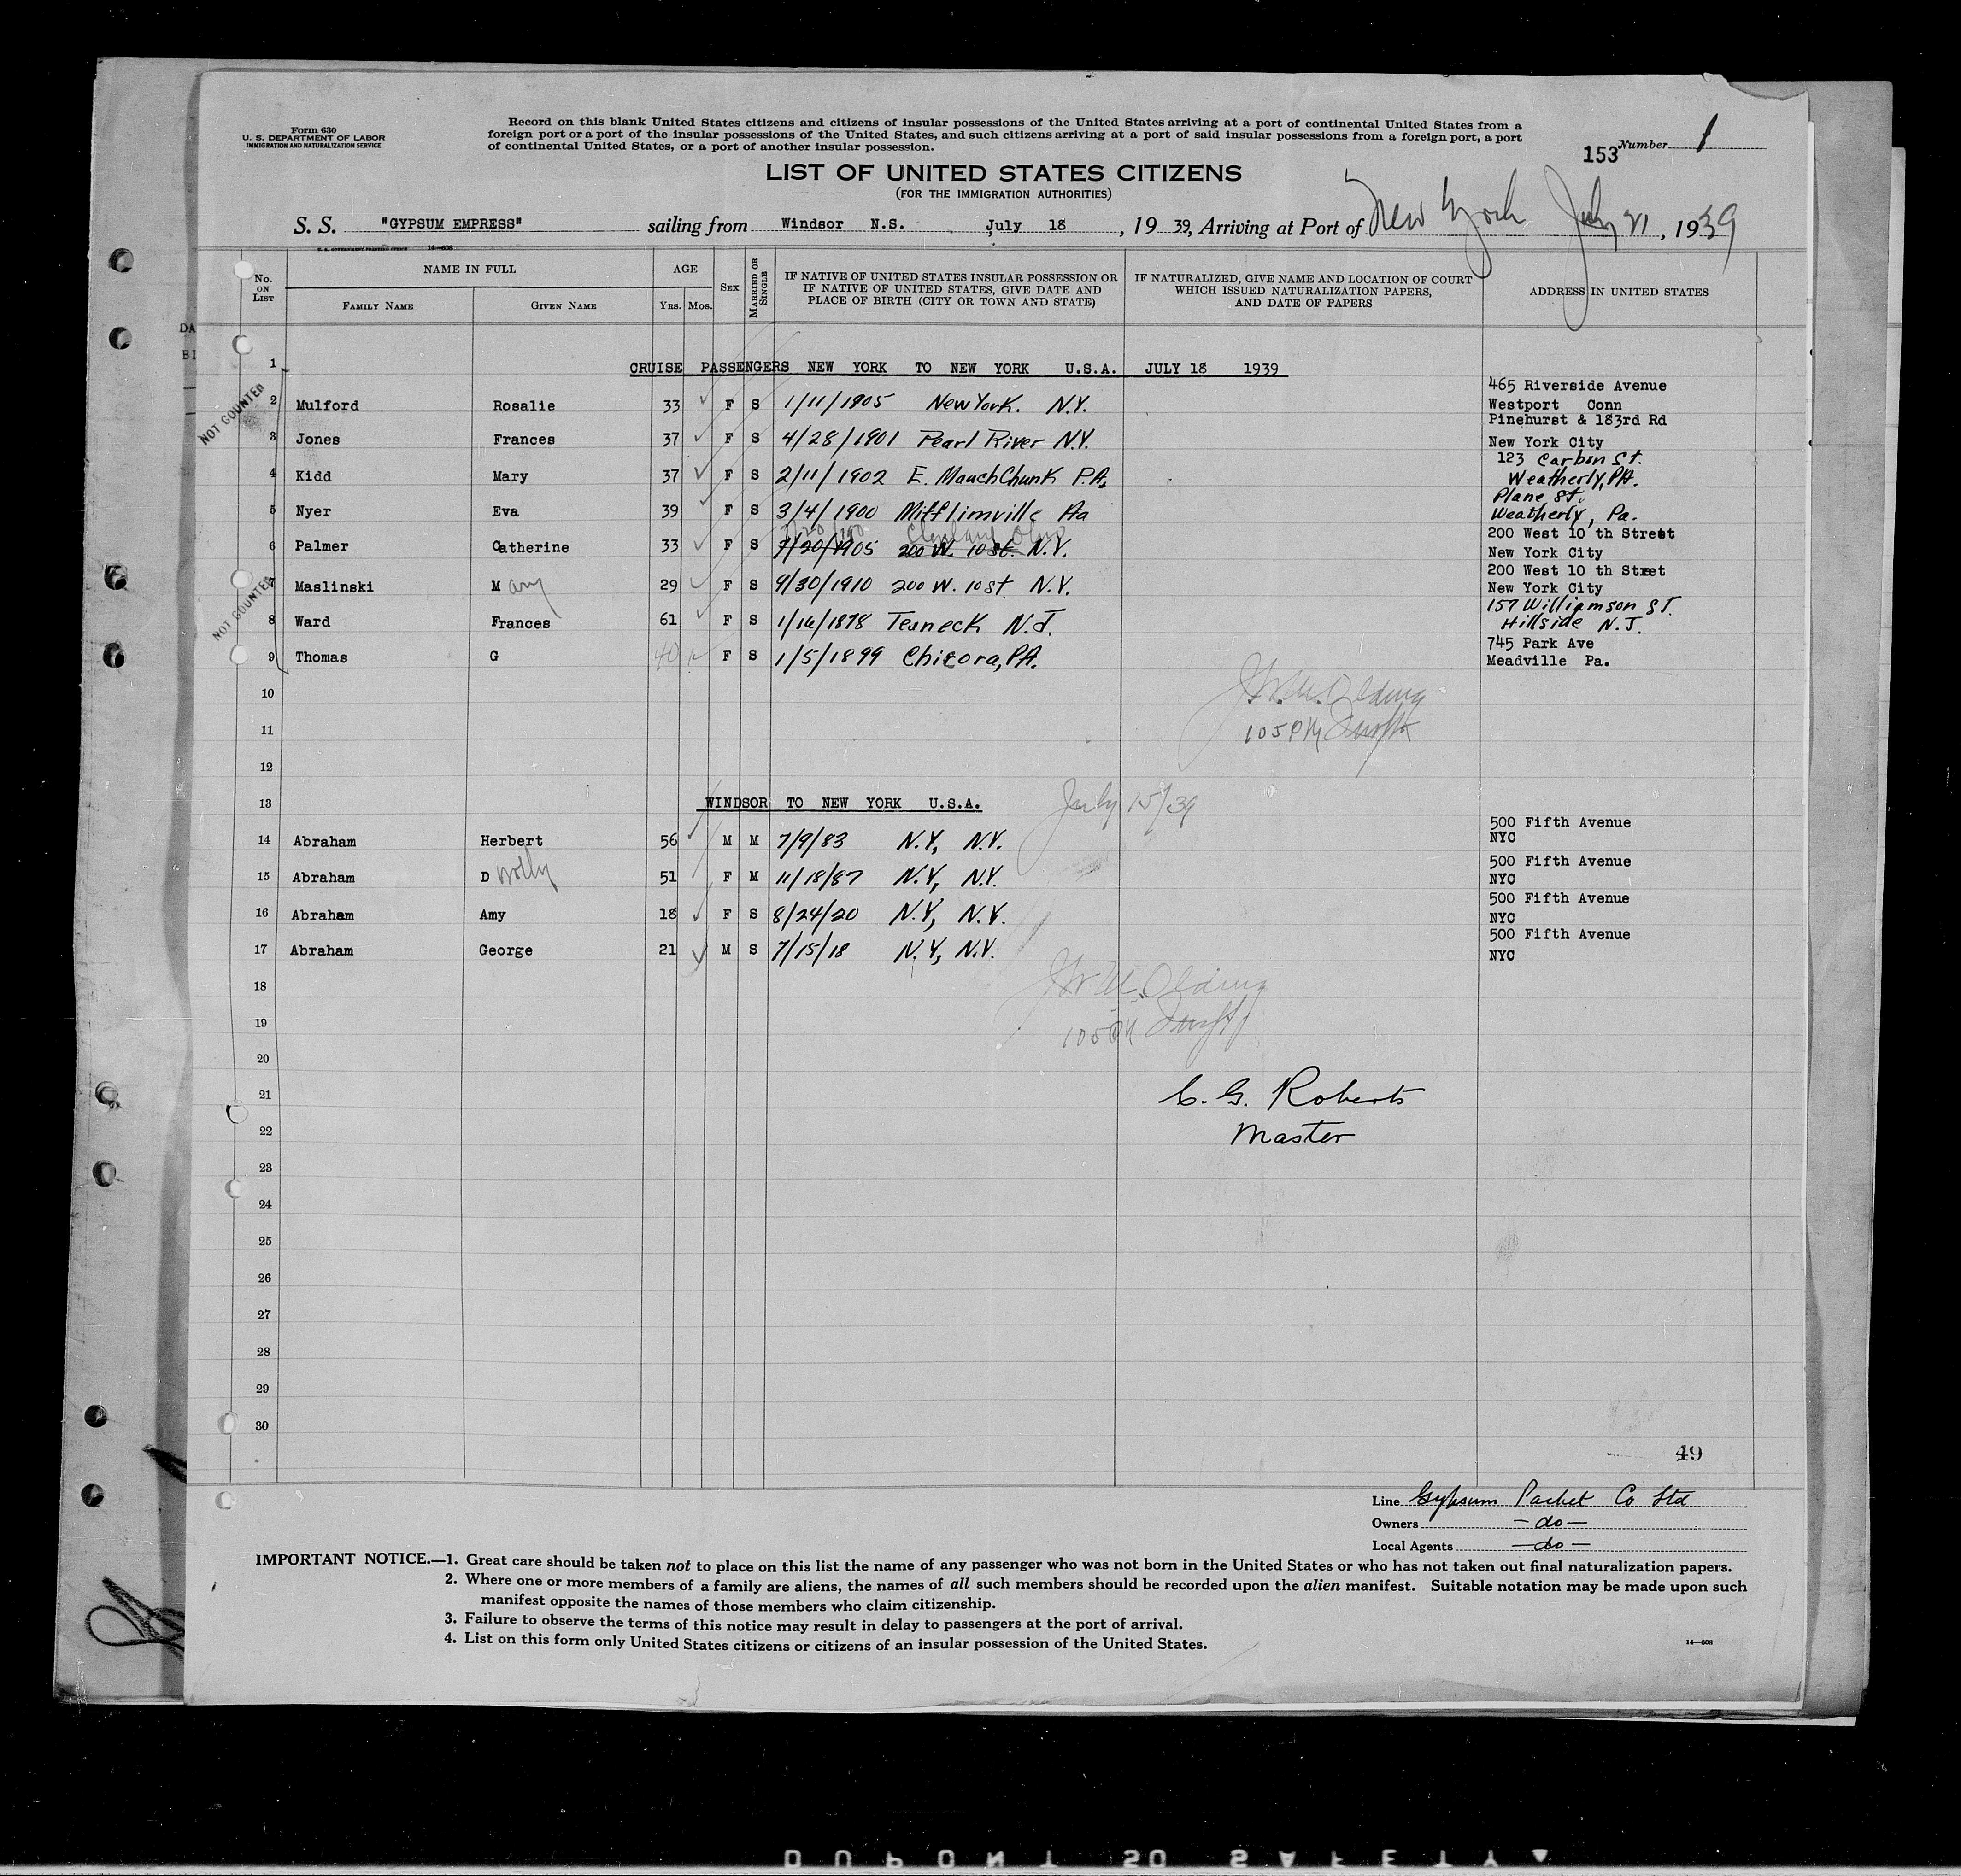 Form 630
U. S. DEPARTMENT OF LABOR
IMMIGRATION AND NATURALIZATION SERVICE
Record on this blank United States citizens and citizens of insular possessions of the United States arriving at a port of continental United States from a
foreign port or a port of the insular possessions of the United States, and such citizens arriving at a port of said insular possessions from a foreign port, a port
of continental United States, or a port of another insular possession.
153 Number 1
LIST OF UNITED STATES CITIZENS
(FOR THE IMMIGRATION AUTHORITIES)
S. S. "GYPSUM EMPRESS" sailing from Windsor N.S. July 18, 1939, Arriving at Port of New York July 21, 1939
U. S. GOVERNMENT PRINTING OFFICE 14—608
No. ON LIST
NAME IN FULL
FAMILY NAME
GIVEN NAME
AGE
YRS. MOS.
SEX
MARRIED OR SINGLE
IF NATIVE OF UNITED STATES INSULAR POSSESSION OR
IF NATIVE OF UNITED STATES, GIVE DATE AND
PLACE OF BIRTH (CITY OR TOWN AND STATE)
IF NATURALIZED, GIVE NAME AND LOCATION OF COURT
WHICH ISSUED NATURALIZATION PAPERS,
AND DATE OF PAPERS
ADDRESS IN UNITED STATES
DA
BI
1 CRUISE PASSENGERS NEW YORK TO NEW YORK U.S.A. JULY 18 1939
NOT COUNTED
2 Mulford Rosalie 33 F S 1/11/1905 New York. N.Y. 465 Riverside Avenue
Westport Conn
3 Jones Frances 37 F S 4/28/1901 Pearl River N.Y. Pinehurst & 183rd Rd
New York City
4 Kidd Mary 37 F S 2/11/1902 E. Mauch Chunk P.A. 123 Carbon St.
Weatherly, PA.
5 Nyer Eva 39 F S 3/4/1900 Mifflinville Pa Plane St.
Weatherly, Pa.
Cleveland Ohio
6 Palmer Catherine 33 F S 7/20/1905 200 W. 10 St. N.Y. 200 West 10 th Street
New York City
NOT COUNTED
7 Maslinski Mary 29 F S 9/30/1910 200 W. 10 St. N.Y. 200 West 10 th Stret
New York City
8 Ward Frances 61 F S 1/16/1878 Teaneck N.J. 157 Williamson ST.
Hillside N.J.
9 Thomas G 40 F S 1/5/1899 Chicora, PA. 745 Park Ave
Meadville Pa.
10
11 105PM
12
13 WINDSOR TO NEW YORK U.S.A. July 15/39
14 Abraham Herbert 56 M M 7/9/83 N.Y, N.Y. 500 Fifth Avenue
NYC
15 Abraham Dolly 51 F M 11/18/87 N.Y, N.Y. 500 Fifth Avenue
NYC
16 Abraham Amy 18 F S 8/24/20 N.Y, N.Y. 500 Fifth Avenue
NYC
17 Abraham George 21 M S 7/15/18 N.Y, N.Y. 500 Fifth Avenue
NYC
18
19
20
21 C. G. Roberts
22 Master
23
24
25
26
27
28
29
30
49
Line Gypsum Packet Co Ltd
Owners —do—
Local Agents —do—
IMPORTANT NOTICE.—1. Great care should be taken not to place on this list the name of any passenger who was not born in the United States or who has not taken out final naturalization papers.
2. Where one or more members of a family are aliens, the names of all such members should be recorded upon the alien manifest. Suitable notation may be made upon such
manifest opposite the names of those members who claim citizenship.
3. Failure to observe the terms of this notice may result in delay to passengers at the port of arrival.
4. List on this form only United States citizens or citizens of an insular possession of the United States.
14—608
DUPONT SO SAFETY